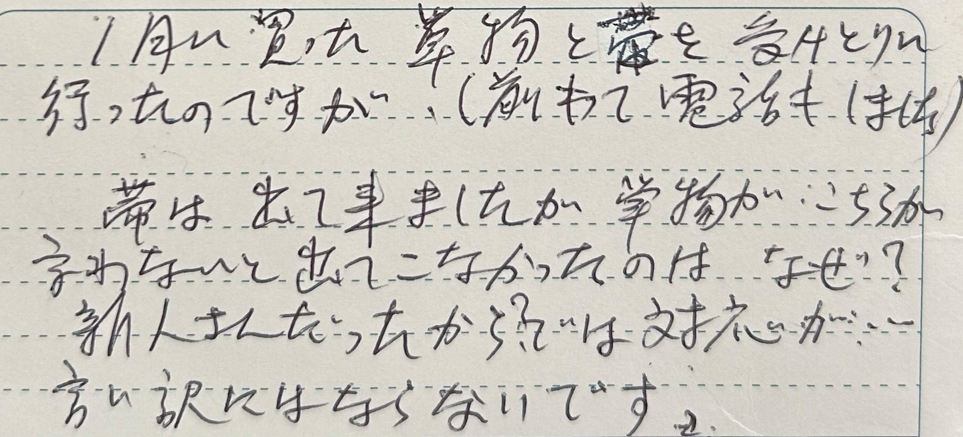 1月に買った草物と帯を受けとりに
行ったのですが、(前もって電話もしました)
帯は出て来ましたが草物がこちらが
言わないと出てこなかったのはなぜ?
新人さんだったから?では対応が…
言い訳にはならないです。